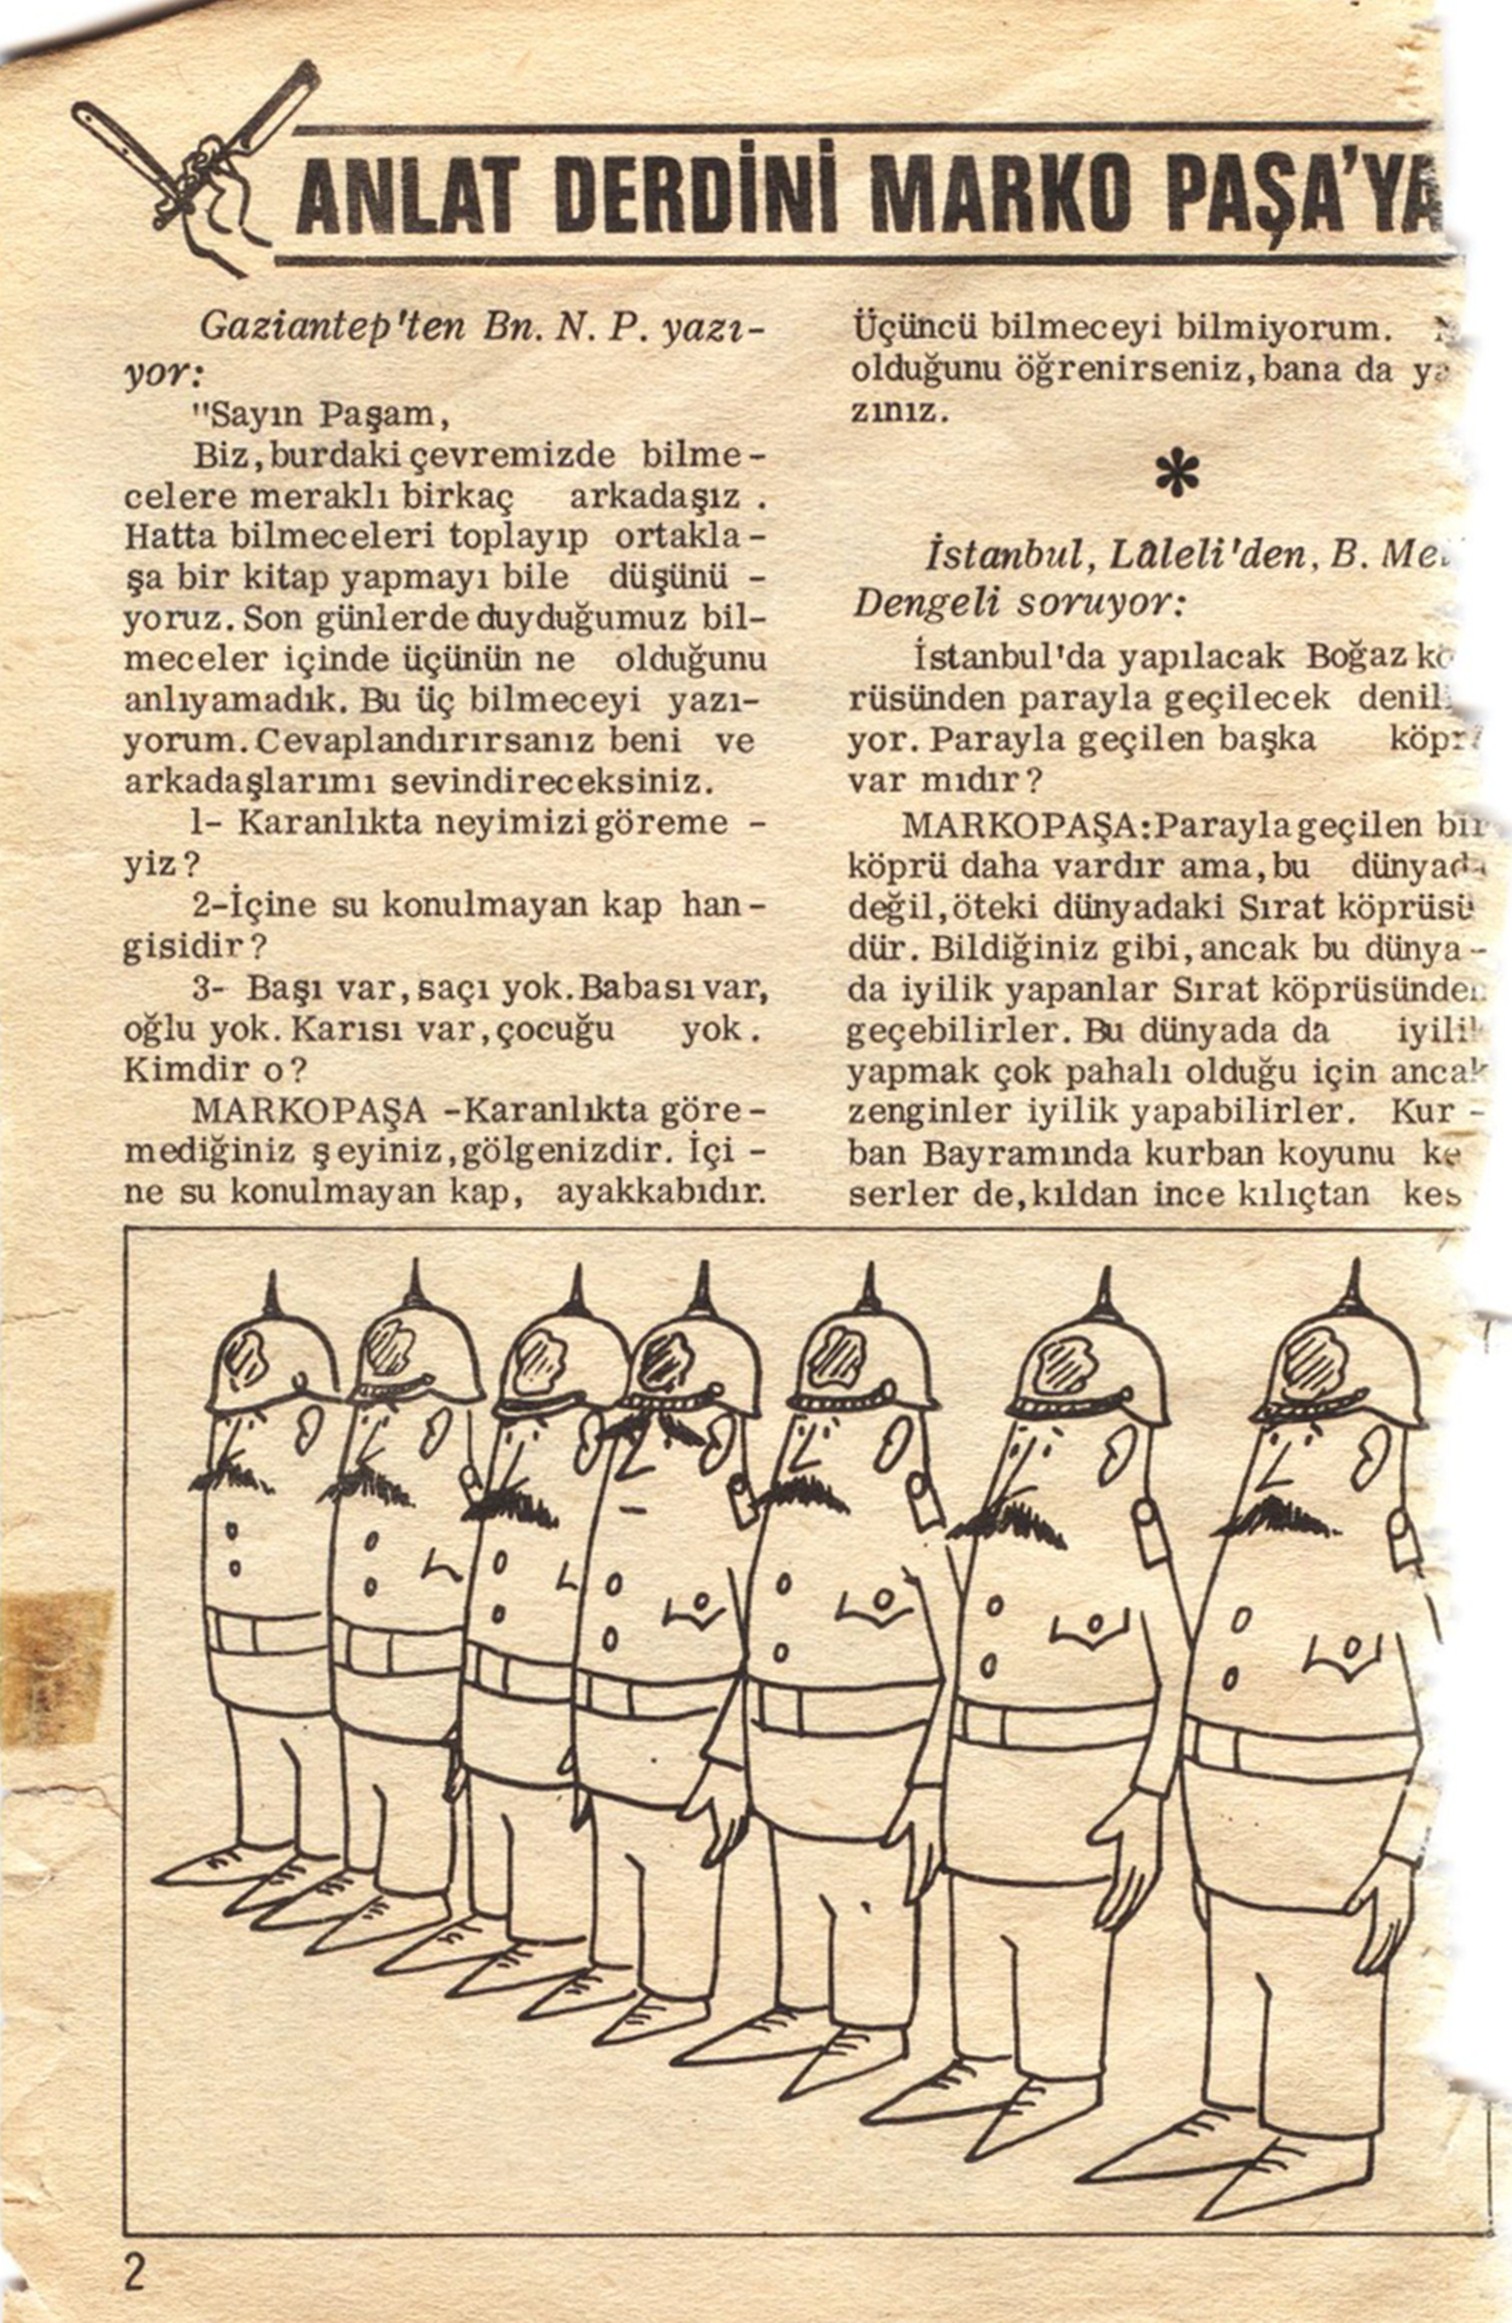 ANLAT DERDİNİ MARKO PAŞA'YA
Gaziantep'ten Bn. N. P. yazı-
yor:
"Sayın Paşam,
Biz,burdaki çevremizde bilme-
celere meraklı birkaç arkadaşız .
Hatta bilmeceleri toplayıp ortakla-
şa bir kitap yapmayı bile düşünü -
yoruz. Son günlerde duyduğumuz bil-
meceler içinde üçünün ne olduğunu
anlıyamadık. Bu üç bilmeceyi yazı-
yorum. Cevaplandırırsanız beni ve
arkadaşlarımı sevindireceksiniz.
1- Karanlıkta neyimizi göreme -
yiz?
2-İçine su konulmayan kap han-
gisidir?
3- Başı var,saçı yok.Babası var,
oğlu yok. Karısı var,çocuğu yok.
Kimdir o?
MARKOPAŞA -Karanlıkta göre-
mediğiniz şeyiniz,gölgenizdir. İçi -
ne su konulmayan kap, ayakkabıdır.
Üçüncü bilmeceyi bilmiyorum.
olduğunu öğrenirseniz,bana da
zınız.
*
İstanbul, Lâleli'den, B.
Dengeli soruyor:
İstanbul'da yapılacak Boğaz
rüsünden parayla geçilecek
yor. Parayla geçilen başka
var mıdır?
MARKOPAŞA:Parayla geçilen bir
köprü daha vardır ama,bu dünyada
değil,öteki dünyadaki Sırat köprüsü
dür. Bildiğiniz gibi,ancak bu dünya-
da iyilik yapanlar Sırat köprüsünden
geçebilirler. Bu dünyada da iyilik
yapmak çok pahalı olduğu için ancak
zenginler iyilik yapabilirler. Kur -
ban Bayramında kurban koyunu ke
serler de,kıldan ince kılıçtan kes
2